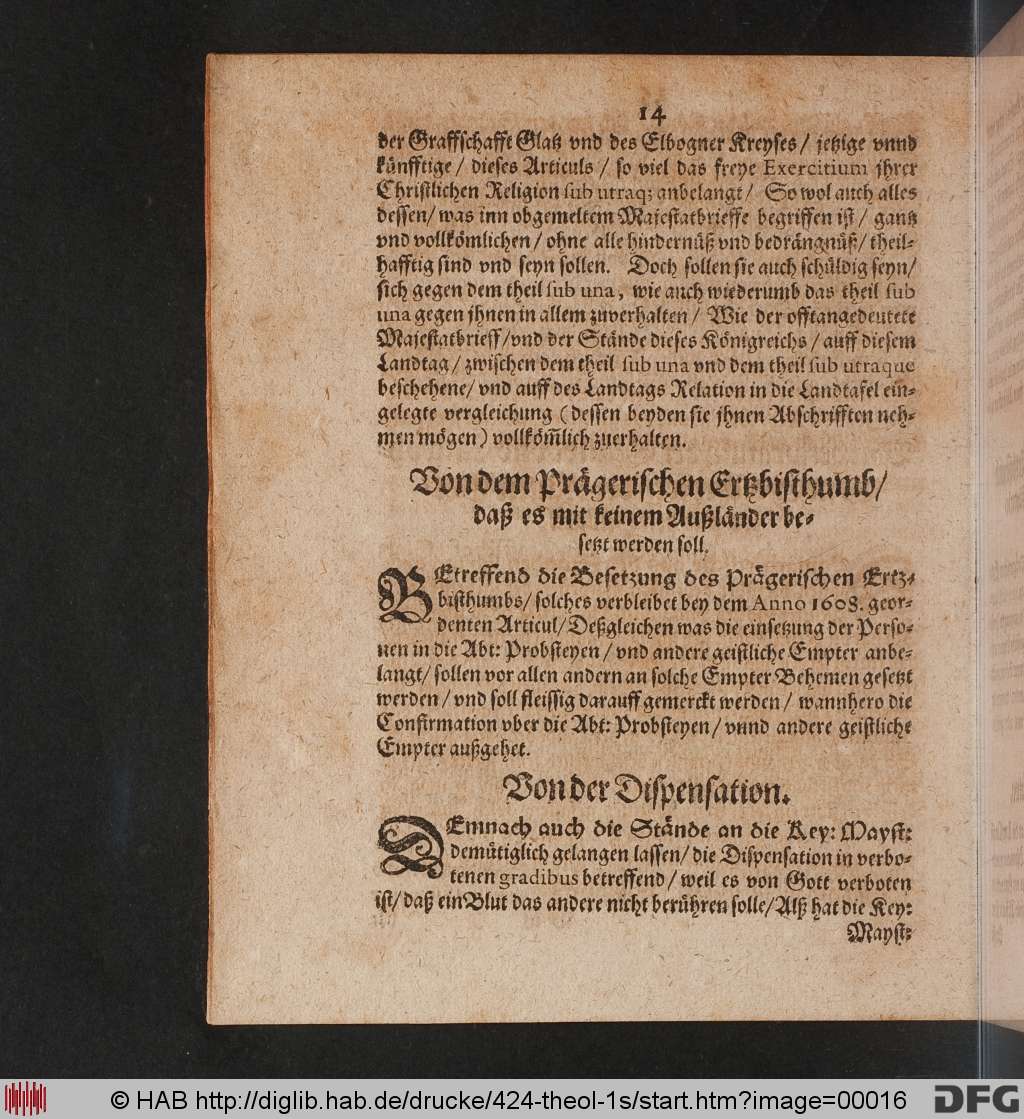 14
der Graffschafft Glatz vnd des Elbogner Kreyses / jetzige vnnd
künfftige / dieses Articuls / so viel das freye Exercitium jhrer
Christlichen Religion sub utraq; anbelangt / So wol auch alles
dessen / was inn obgemeltem Maiestatbrieffe begriffen ist / gantz
vnd vollkömlichen / ohne alle hindernüß vnd bedrängnüß / theil-
hafftig sind vnd seyn sollen. Doch sollen sie auch schüldig seyn /
sich gegen dem theil sub una, wie auch wiederumb das theil sub
una gegen jhnen in allem zuverhalten / Wie der offtangedeutete
Majestatbrieff / vnd der Stände dieses Königreichs / auff diesem
Landtag / zwischen dem theil sub una vnd dem theil sub utraque
beschehene / vnd auff des Landtags Relation in die Landtafel ein-
gelegte vergleichung (dessen beyden sie jhnen Abschrifften neh-
men mögen) vollköm̃lich zuerhalten.
Von dem Prägerischen Ertzbisthumb /
daß es mit keinem Außländer be-
setzt werden soll.
BEtreffend die Besetzung des Prägerischen Ertz-
bisthumbs / solches verbleibet bey dem Anno 1608. geor-
denten Articul / Deßgleichen was die einsetzung der Perso-
nen in die Abt: Probsteyen / vnd andere geistliche Empter anbe-
langt / sollen vor allen andern an solche Empter Behemen gesetzt
werden / vnd soll fleissig darauff gemerckt werden / wannhero die
Confirmation vber die Abt: Probsteyen / vnnd andere geistliche
Empter außgehet.
Von der Dispensation.
DEmnach auch die Stände an die Key: Mayst:
demütiglich gelangen lassen / die Dispensation in verbo-
tenen gradibus betreffend / weil es von Gott verboten
ist / daß ein Blut das andere nicht berühren solle / Alß hat die Key:
Mayst:
© HAB http://diglib.hab.de/drucke/424-theol-1s/start.htm?image=00016
DFG